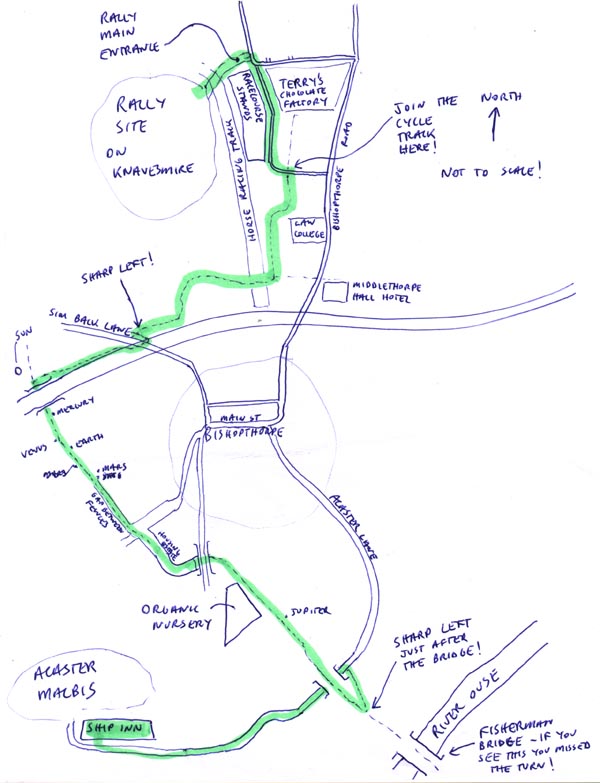 RALLY
MAIN
ENTRANCE
RALLY
SITE
ON
KNAVESMIRE
RACECOURSE
STANDS
TERRY'S
CHOCOLATE
FACTORY
HORSE RACING TRACK
BISHOPTHORPE ROAD
JOIN THE
CYCLE
TRACK
HERE!
NORTH
NOT TO SCALE!
LAW
COLLEGE
MIDDLETHORPE
HALL HOTEL
SHARP LEFT!
SIM BACK LANE
SUN
MERCURY
VENUS
EARTH
MARS
GAP BETWEEN
FENCES
MAIN ST
BISHOPTHORPE
HOUSING
ESTATE
ACASTER LANE
ORGANIC
NURSERY
JUPITER
SHARP LEFT
JUST AFTER
THE BRIDGE!
RIVER OUSE
FISHERMAN
BRIDGE - IF YOU
SEE THIS YOU MISSED
THE TURN!
ACASTER
MALBIS
SHIP INN